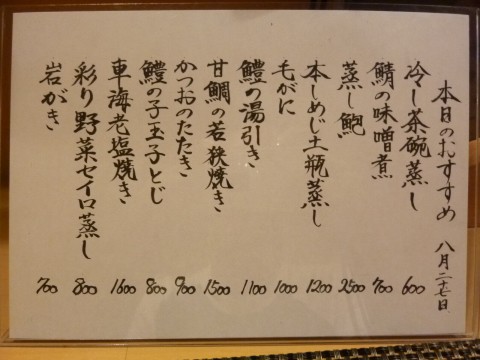 本日のおすすめ 八月二十七日
冷し茶碗蒸し 600
鯖の味噌煮 700
蒸し鮑 2500
本しめじ土瓶蒸し 1200
毛がに 1000
鱧の湯引き 1100
甘鯛の若狭焼き 1500
かつおのたたき 900
鱧の子玉子とじ 800
車海老塩焼き 1600
彩り野菜セイロ蒸し 800
岩がき 700